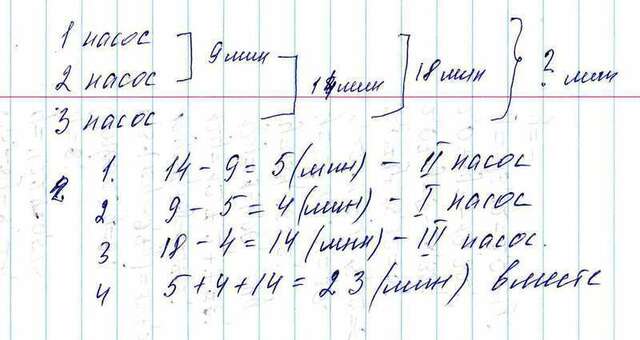 1 насос
9 мин
18 мин
? мин
2 насос
14 мин
3 насос
1. 14 - 9 = 5 (мин) - II насос
2. 9 - 5 = 4 (мин) - I насос
3 18 - 4 = 14 (мин) - III насос.
4 5 + 4 + 14 = 23 (мин) вместе